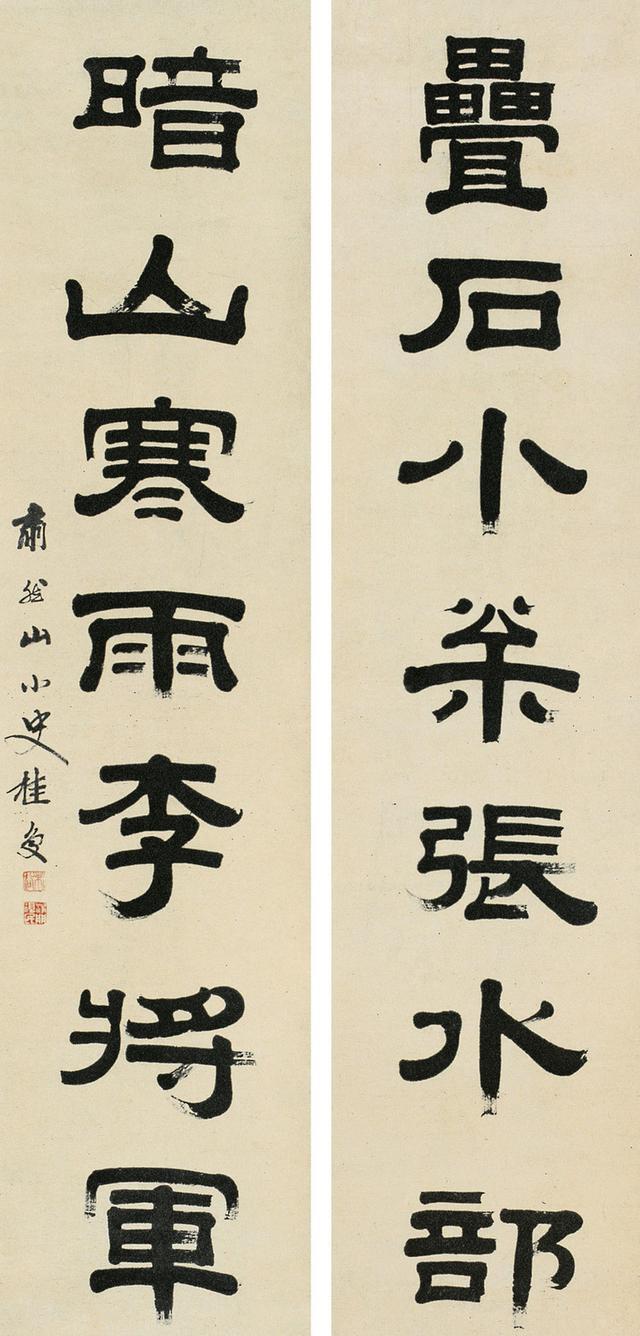 疊石小枀張水部
暗山寒雨李將軍
肅然山小史桂复